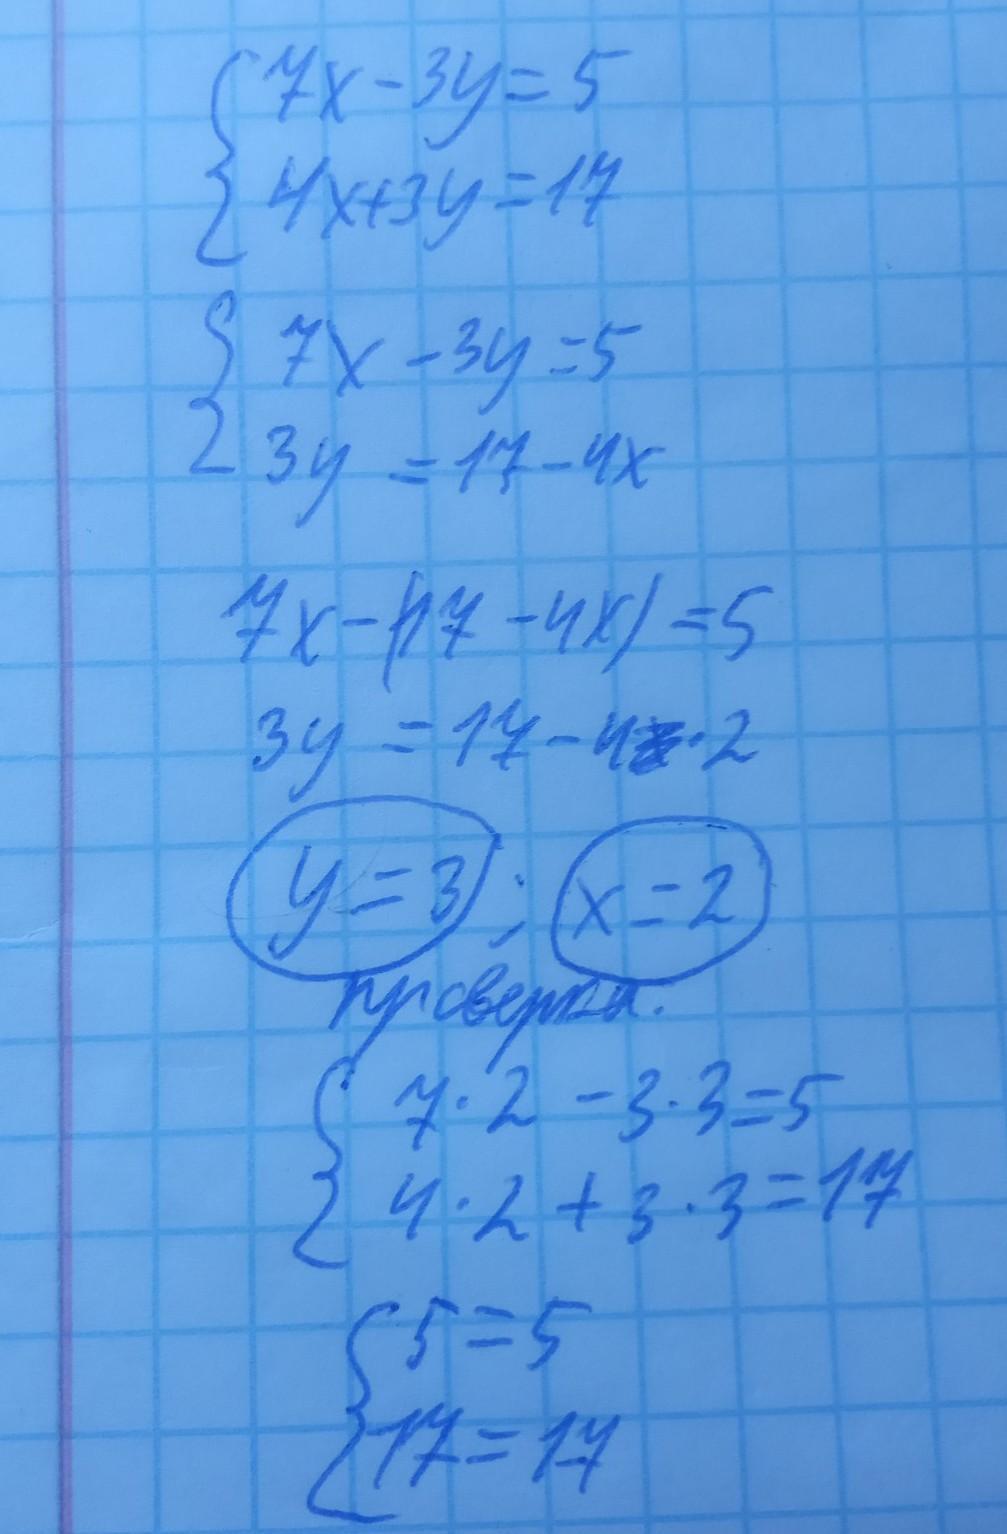 7x-3y=5
4x+3y=17
7x-3y=5
3y=17-4x
7x-(17-4x)=5
3y=17-4·2
y=3; x=2
проверка.
7·2-3·3=5
4·2+3·3=17
5=5
17=17